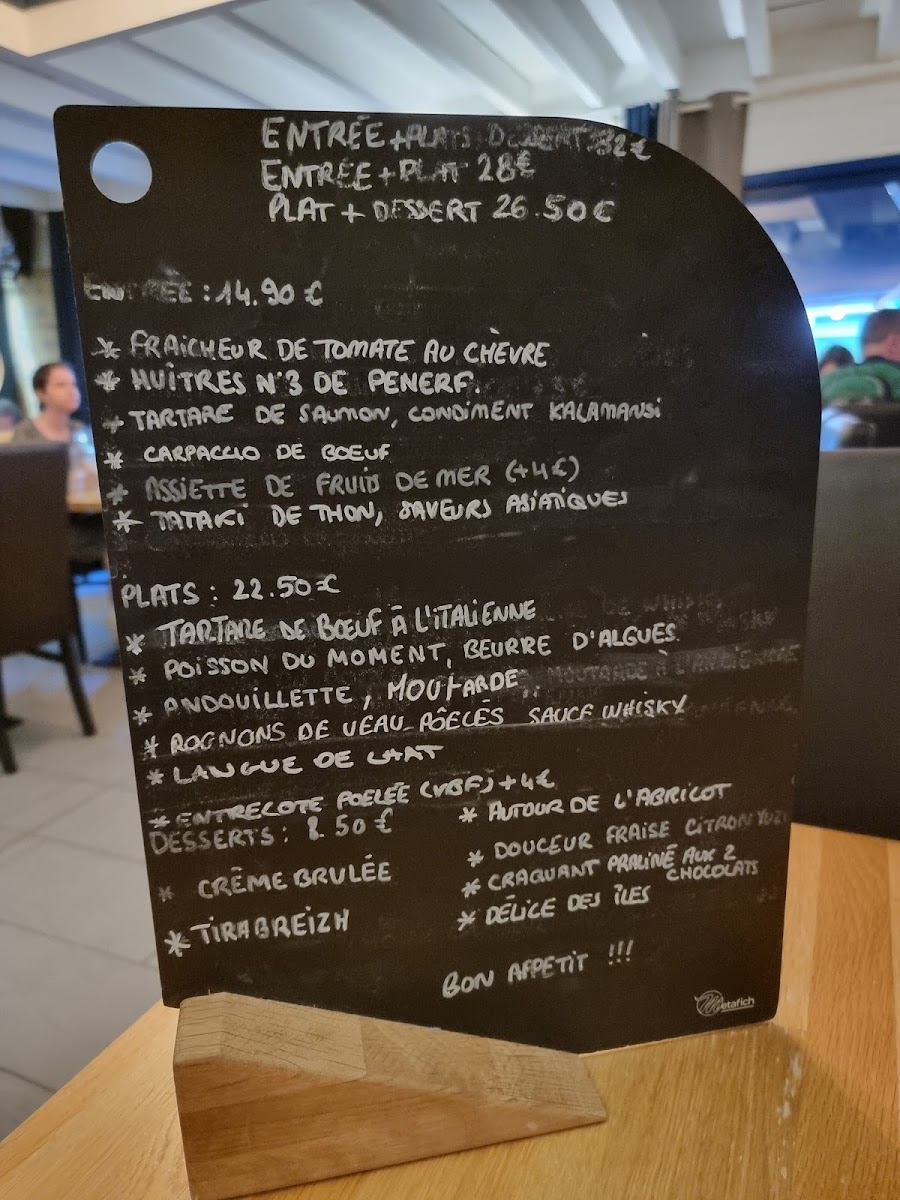 ENTRÉE + PLATS + DESSERT 32€
ENTRÉE + PLAT 28€
PLAT + DESSERT 26.50€
ENTRÉE : 14.90 €
* FRAICHEUR DE TOMATE AU CHÈVRE
* HUÎTRES N°3 DE PENERF.
* TARTARE DE SAUMON, CONDIMENT KALAMANSI
* CARPACCIO DE BŒUF
* ASSIETTE DE FRUITS DE MER (+4€)
* TATAKI DE THON, SAVEURS ASIATIQUES
PLATS : 22.50€
* TARTARE DE BŒUF À L'ITALIENNE
* POISSON DU MOMENT, BEURRE D'ALGUES.
* ANDOUILLETTE, MOUTARDE, MOUTARDE À L'ANCIENNE
* ROGNONS DE VEAU POÊLÉS SAUCE WHISKY
* LANGUE DE CHAT
* ENTRECOTE POELÉE (VBF) +4€
DESSERTS : 8.50€
* CRÊME BRULÉE
* TIRABREIZH
* AUTOUR DE L'ABRICOT
* DOUCEUR FRAISE CITRON YUZU
* CRAQUANT PRALINÉ AUX 2
CHOCOLATS
* DÉLICE DES ÎLES
BON APPETIT !!!
Metafich